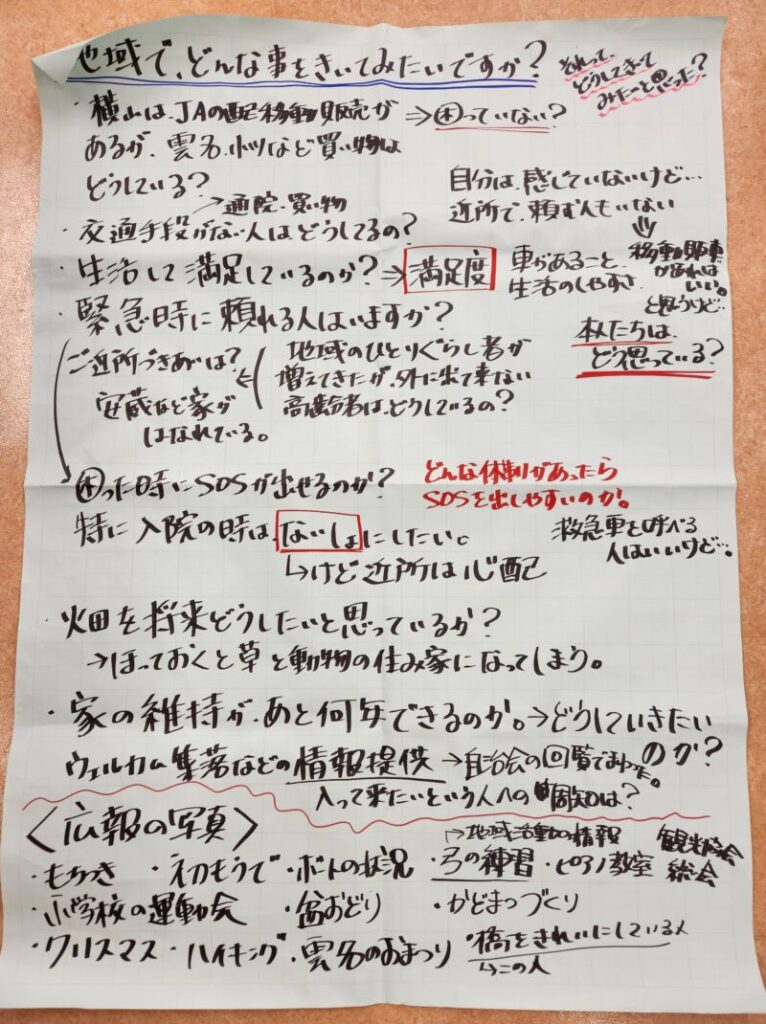 地域で、どんな事をきいてみたいですか?
それって、
どうしてきいて
みたーと思った?
・横山は、JAの配移動販売が ⇒困っていない?
あるが、雲名、小ツなど買い物は
どうしている?
自分は、感じていないけど…
近所で、頼ず人もいない
→通院、買い物
・交通手段がない人はどうしてるの?
・生活して満足しているのか?→満足度
車があること、
生活のしやすさ
移動販売車
があれば
いい。
と思うけど…
本人たちは、
どう思っている?
・緊急時に頼れる人はいますか?
ご近所づきあいは?
安蔵など家が
はなれている。
地域のひとりぐらし者が
増えてきたが、外に出て来ない
高齢者は、どうしているの?
困った時にSOSが出せるのか?
どんな体制があったら
SOSを出しやすいのか。
特に入院の時は、ないしょにしたい。
→けど近所は心配
救急車を呼べる
人はいいけど…。
畑を将来どうしたいと思っているか?
→ほっておくと草と動物の住み家になってしまう。
・家の維持が、あと何年できるのか。→どうしていきたい
のか?
ウェルカム集落などの情報提供→自治会の回覧でまわった。
入って来たいという人への周知は?
〈広報の写真〉
→地域活動の情報
観光協会
総会
・もちつき ・初もうで ・ボートの状況 ・弓の練習 ・ピアノ教室
・小学校の運動会 ・盆おどり ・かどまつづくり
・クリスマス ・ハイキング ・雲名のおまつり ・橋をきれいにしている人
→この人